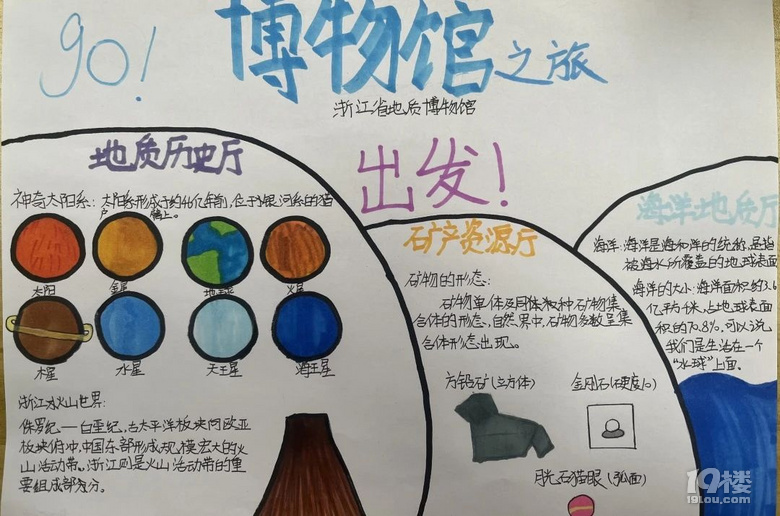 go!
博物馆之旅
浙江省地质博物馆
出发!
地质历史厅
神奇太阳系:太阳系形成于约46亿年前,位于银河系的猎
户臂上。
太阳
金星
地球
火星
木星
水星
天王星
海王星
浙江火山世界:
侏罗纪——白垩纪,古太平洋板块向欧亚
板块俯冲,中国东部形成规模宏大的火
山活动带。浙江则是火山活动带的重
要组成部分。
矿产资源厅
矿物的形态:
矿物单体及同种矿物集
合体的形态,自然界中,矿物多数呈集
合体形态出现。
方铅矿(立方体)
金刚石(硬度10)
月光石猫眼(弧面)
海洋地质厅
海洋:海洋是海和洋的统称,是指
被海水所覆盖的地球表面
海洋的大小:海洋面积约3.6
亿平方千米,占地球表面
积的70.8%,可以说,
我们是生活在一个
“水球”上面。
19楼
19lou.com